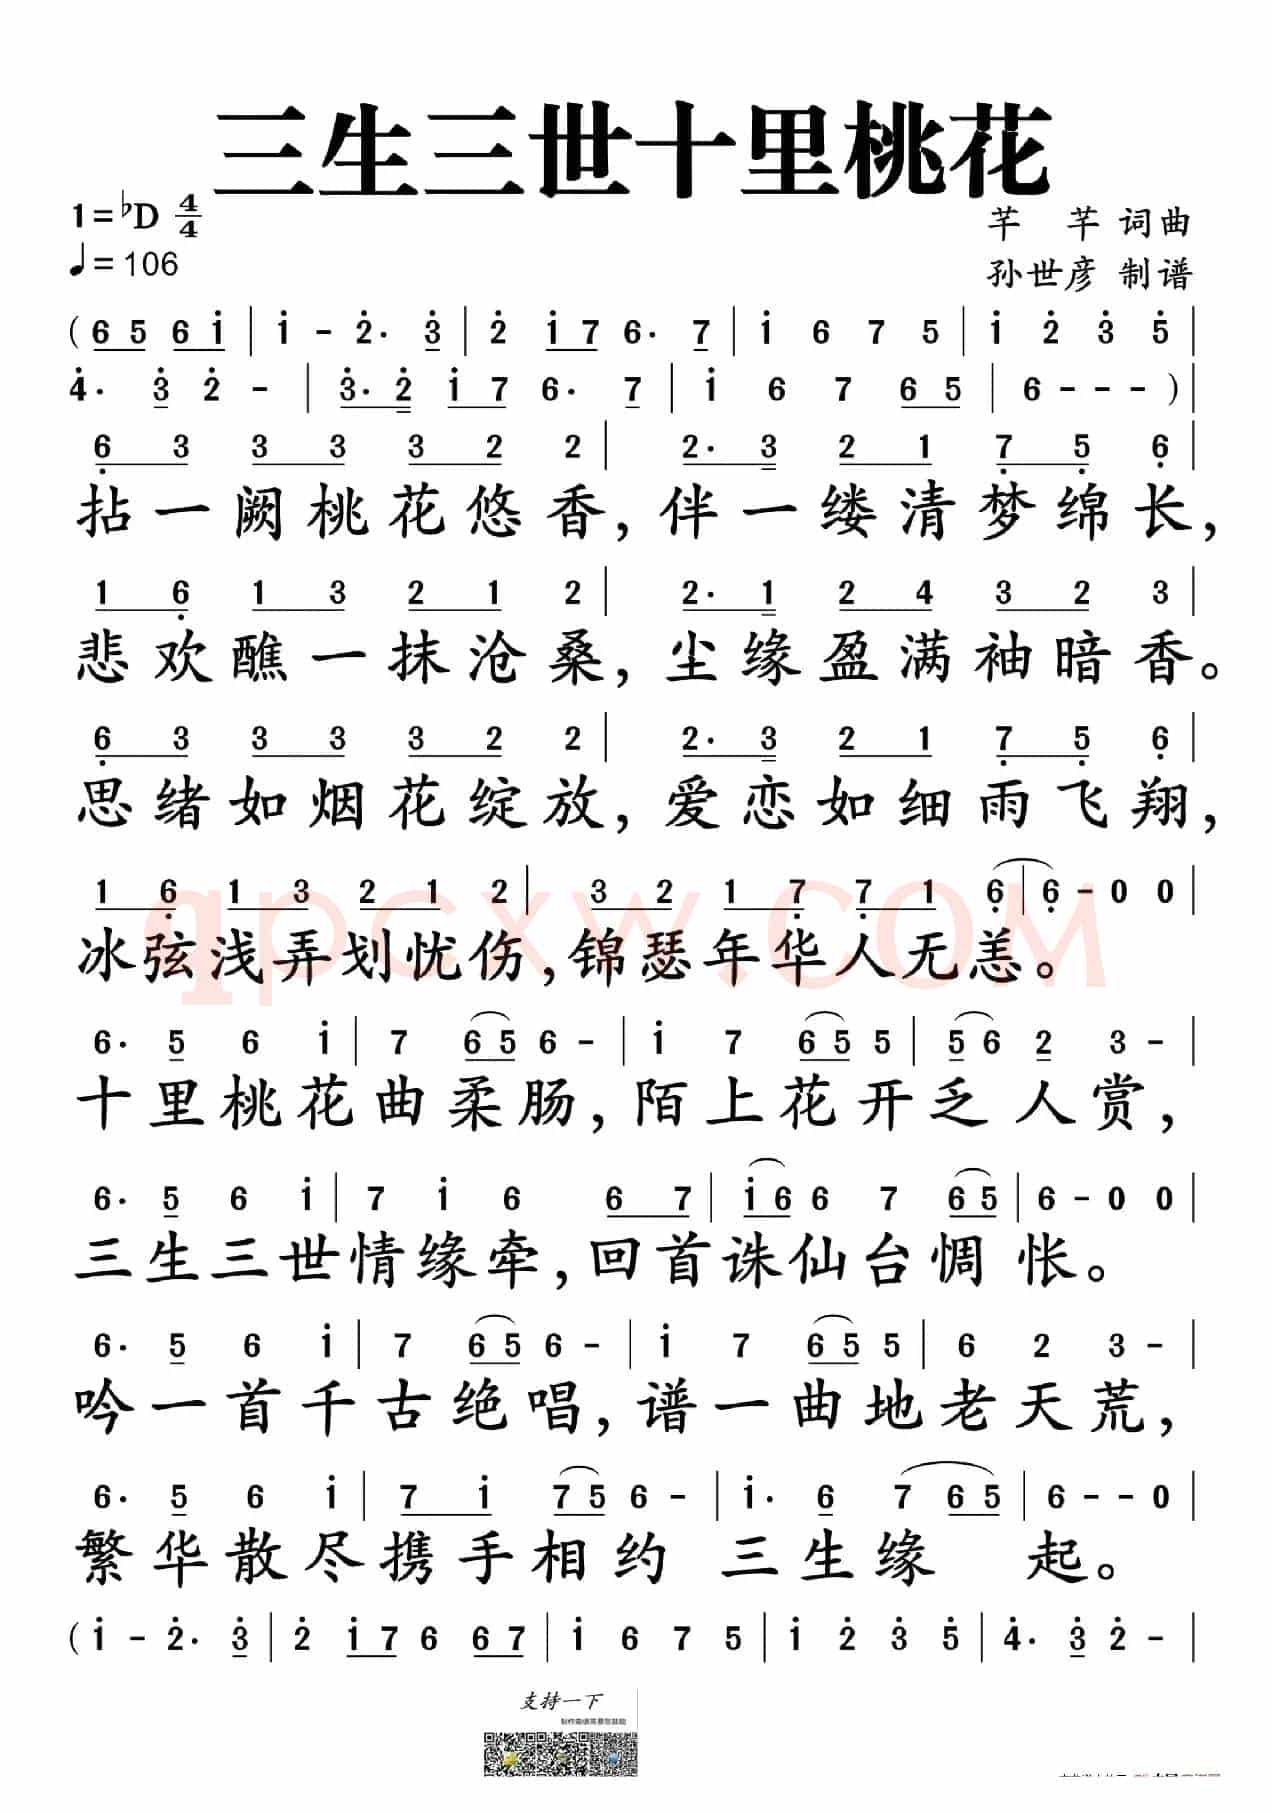 三生三世十里桃花
1=♭D 4/4
芊 芊 词曲
♩=106
孙世彦 制谱
( 6 5 6 i | i - 2· 3 | 2 i 7 6· 7 | i 6 7 5 | i 2 3 5 |
4· 3 2 - | 3· 2 i 7 6· 7 | i 6 7 6 5 | 6 - - - ) |
6 3 3 3 3 2 2 | 2· 3 2 1 7 5 6 |
拈一阙桃花悠香,伴一缕清梦绵长,
1 6 1 3 2 1 2 | 2· 1 2 4 3 2 3 |
悲欢醮一抹沧桑,尘缘盈满袖暗香。
6 3 3 3 3 2 2 | 2· 3 2 1 7 5 6 |
思绪如烟花绽放,爱恋如细雨飞翔,
1 6 1 3 2 1 2 | 3 2 1 7 7 1 6 | 6 - 0 0 |
冰弦浅弄划忧伤,锦瑟年华人无恙。
qpcxw.COM
6· 5 6 i | 7 6 5 6 - | i 7 6 5 5 | 5 6 2 3 - |
十里桃花曲柔肠,陌上花开乏人赏,
6· 5 6 i | 7 i 6 6 7 | i 6 6 7 6 5 | 6 - 0 0 |
三生三世情缘牵,回首诛仙台惆怅。
6· 5 6 i | 7 6 5 6 - | i 7 6 5 5 | 6 2 3 - |
吟一首千古绝唱,谱一曲地老天荒,
6· 5 6 i | 7 i 7 5 6 - | i· 6 7 6 5 | 6 - - 0 |
繁华散尽携手相约 三生缘 起。
( i - 2· 3 | 2 i 7 6 6 7 | i 6 7 5 | i 2 3 5 | 4· 3 2 - |
支持一下